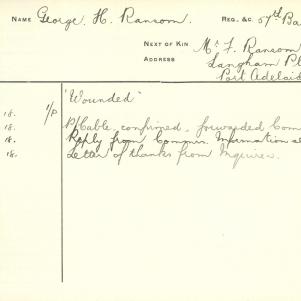 NAME George H. Ransom. REG. &C. 57th Ba
NEXT OF KIN Mr F. Ransom
ADDRESS Langham Pl
Port Adelaid
"Wounded"
18. 1/P
18. P/Cable confirmed, forwarded Com
18. Reply from Commr. Information
18. Letter of thanks from Inquirer.